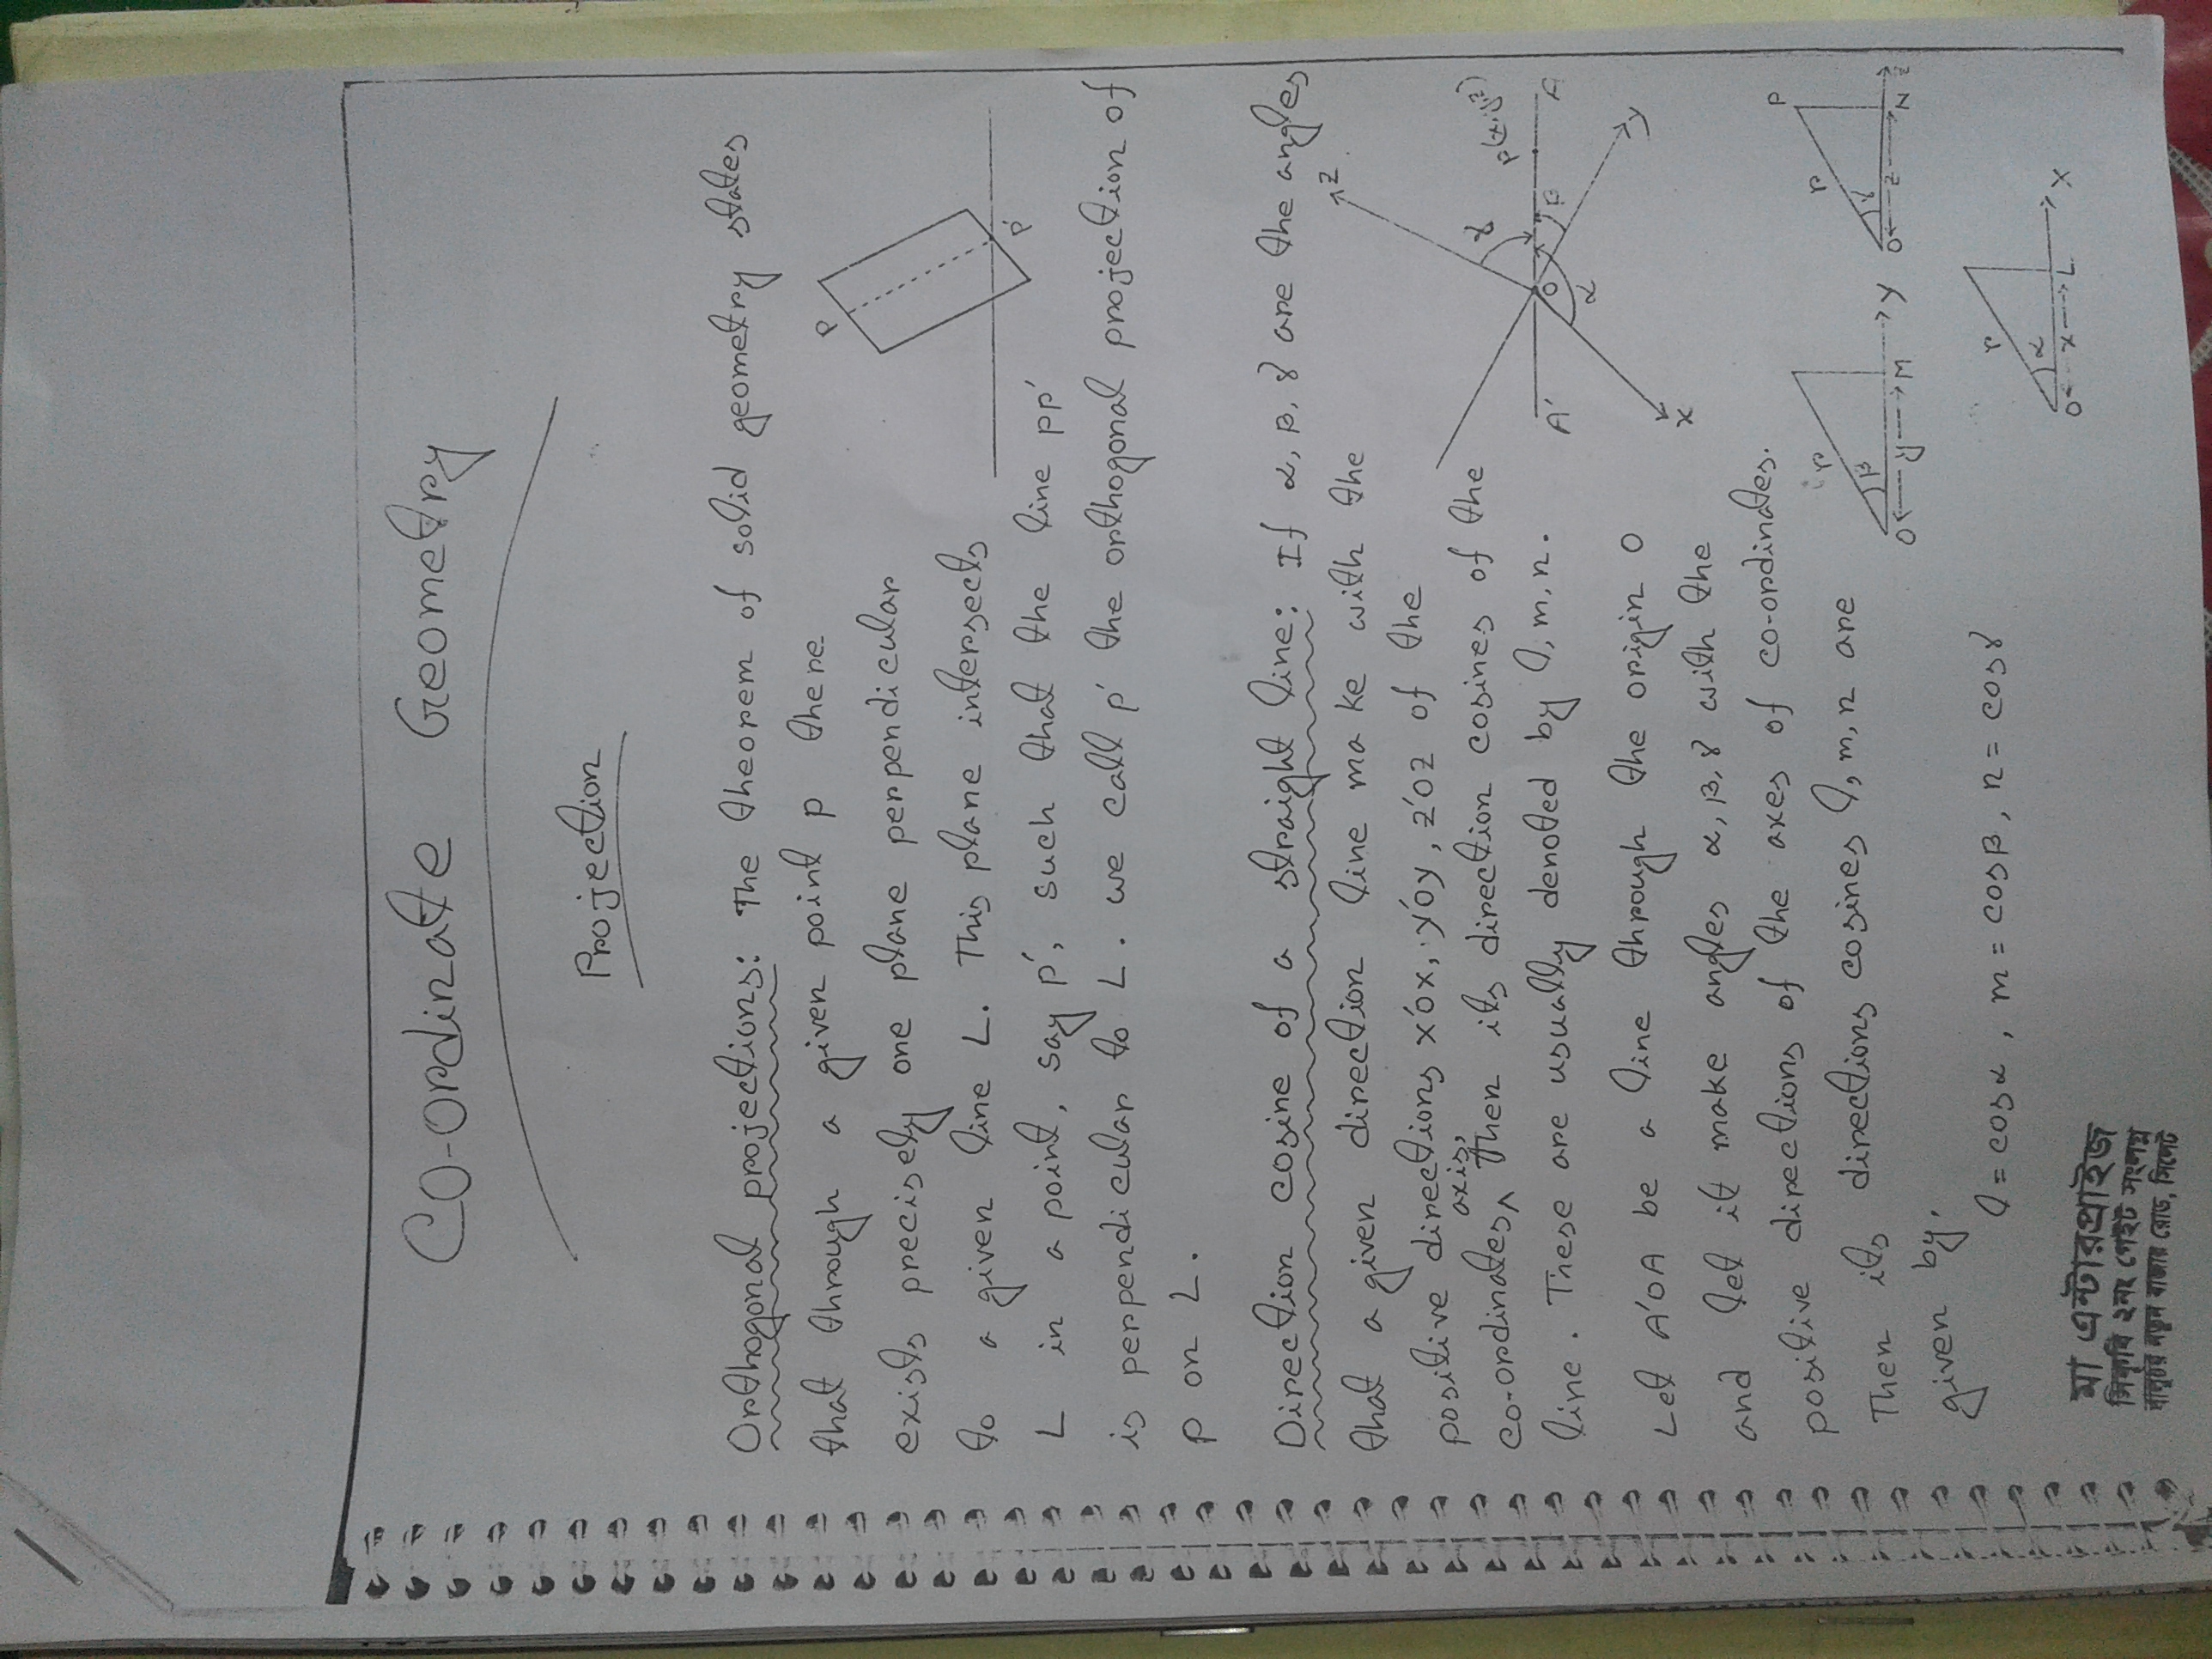 CO-Ordinate Geometry
Projection
Orthogonal projections: The theorem of solid geometry states
that through a given point p there
exists precisely one plane perpendicular
to a given line L. This plane intersects
L in a point, say p', such that the line pp'
is perpendicular to L. we call p' the orthogonal projection of
p on L.
P
P'
Direction cosine of a straight line: If α, β, γ are the angles
that a given direction line make with the
positive directions x'ox, y'oy, z'oz of the
axis,
co-ordinates^ Then its direction cosines of the
line. These are usually denoted by l, m, n.
Let A'OA be a line through the origin O
and let it make angles α, β, γ with the
positive directions of the axes of co-ordinates.
Then its directions cosines l, m, n are
given by,
l = cosα, m = cosβ, n = cosγ
Z
γ
P(x,y,z)
A' O β A
α
y
x
r
β
O y M y
P
r
γ
O z N z
r
α
O x L X
মা এন্টারপ্রাইজ
সিকৃবি ২নং গেইট সংলগ্ন
বালুচর নতুন বাজার রোড, সিলেট